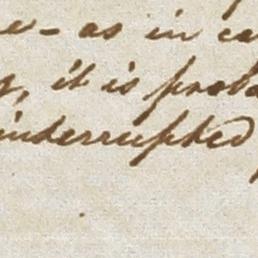 - as in ca
, it is proba
interrupted